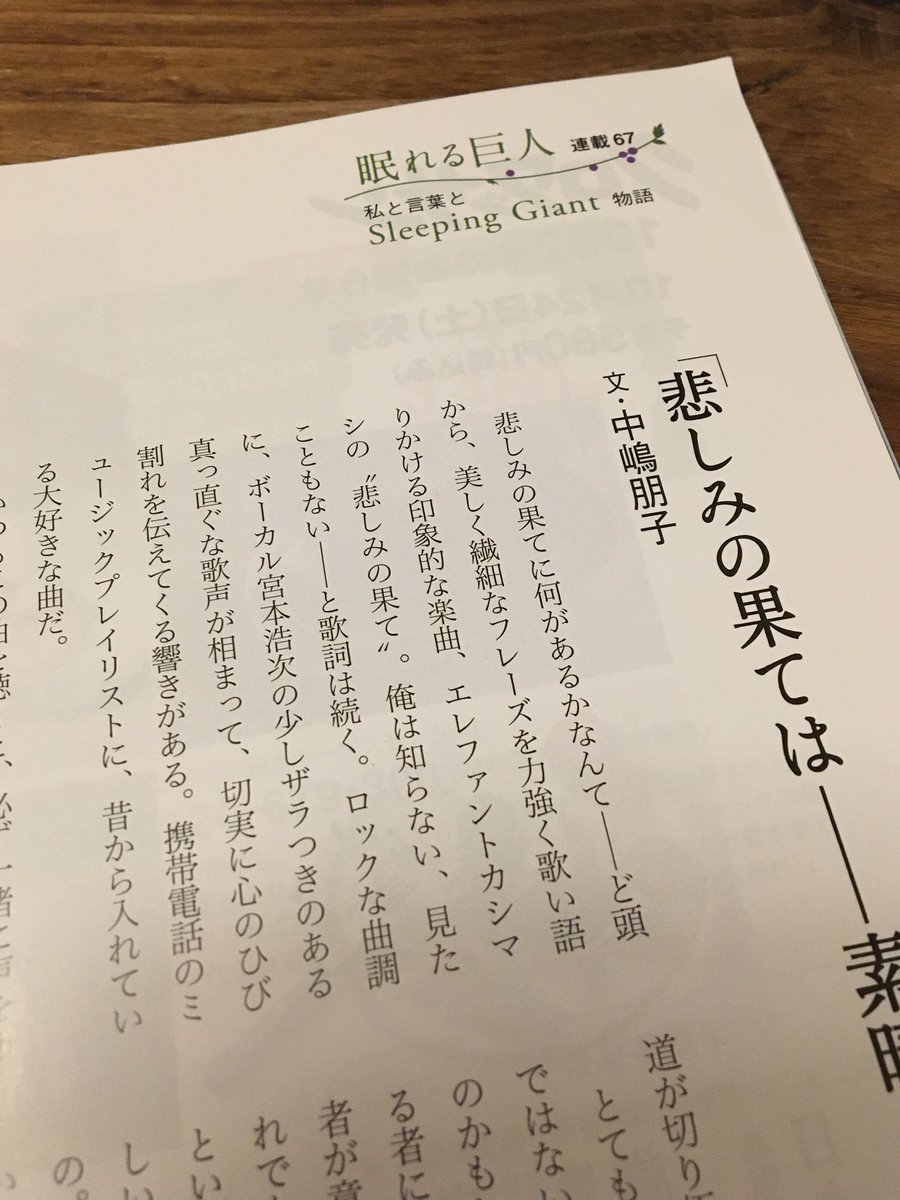 眠れる巨人 連載67
私と言葉と
Sleeping Giant 物語
「悲しみの果ては——素晴
文・中嶋朋子
悲しみの果てに何があるかなんて——ど頭
から、美しく繊細なフレーズを力強く歌い語
りかける印象的な楽曲、エレファントカシマ
シの〝悲しみの果て〟。俺は知らない、見た
こともない——と歌詞は続く。ロックな曲調
に、ボーカル宮本浩次の少しザラつきのある
真っ直ぐな歌声が相まって、切実に心のひび
割れを伝えてくる響きがある。携帯電話のミ
ュージックプレイリストに、昔から入れてい
る大好きな曲だ。
道が切り
とても
ではない
のかも
る者に
者が意
れで
とい
しい
の。